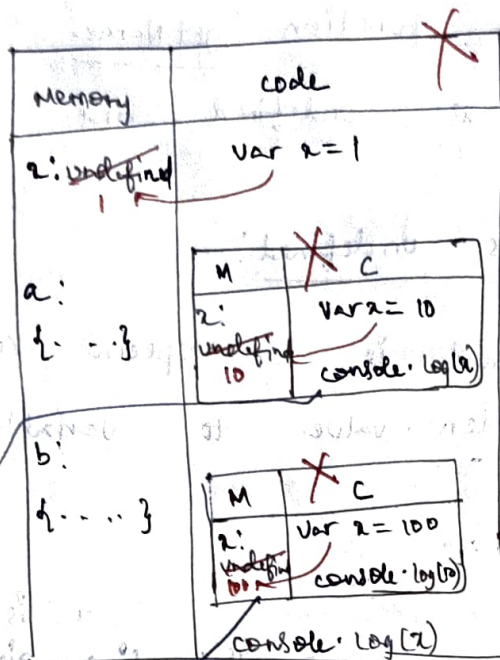 Memory
code
x: undefined
1
var x = 1
a:
{. ..}
M
C
x:
undefined
10
var x = 10
console.log(x)
b:
{.....}
M
C
x:
undefin
100
var x = 100
console.log(x)
console.log(x)